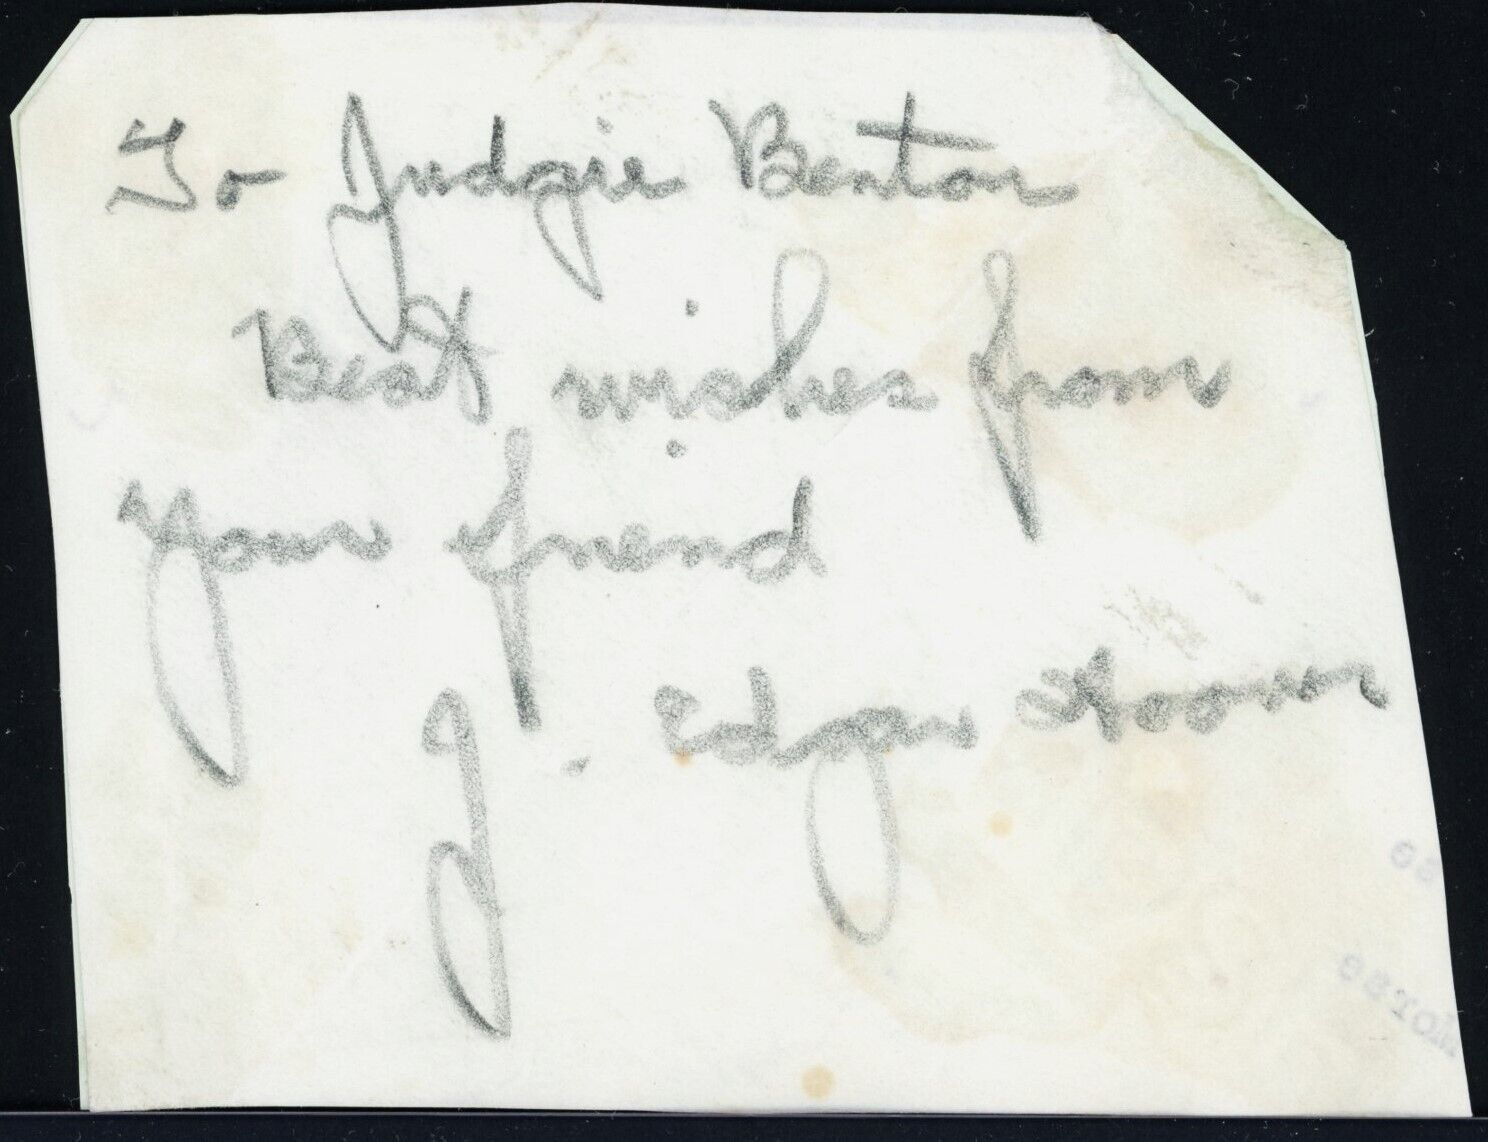 To Judgie Benton
Best wishes from
your friend
J. Edgar Hoover